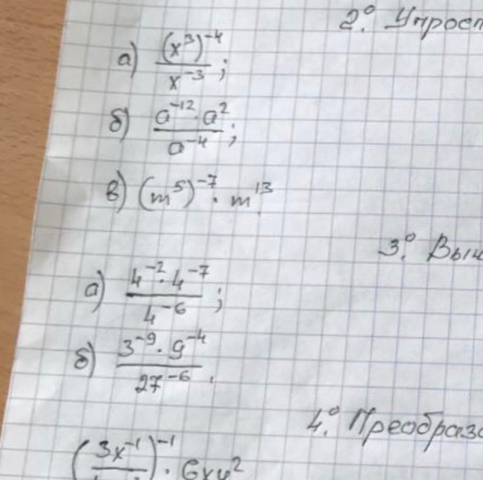 2° Упрост
а) (x³)⁻⁴ / x⁻³ ;
б) a⁻¹² · a² / a⁻⁴ ;
в) (m⁵)⁻⁷ · m¹³
3° Вычи
а) 4⁻² · 4⁻⁷ / 4⁻⁶ ;
б) 3⁻⁹ · 9⁻⁴ / 27⁻⁶ .
4° Преобраз
(3x⁻¹ / )⁻¹ · 6xy²